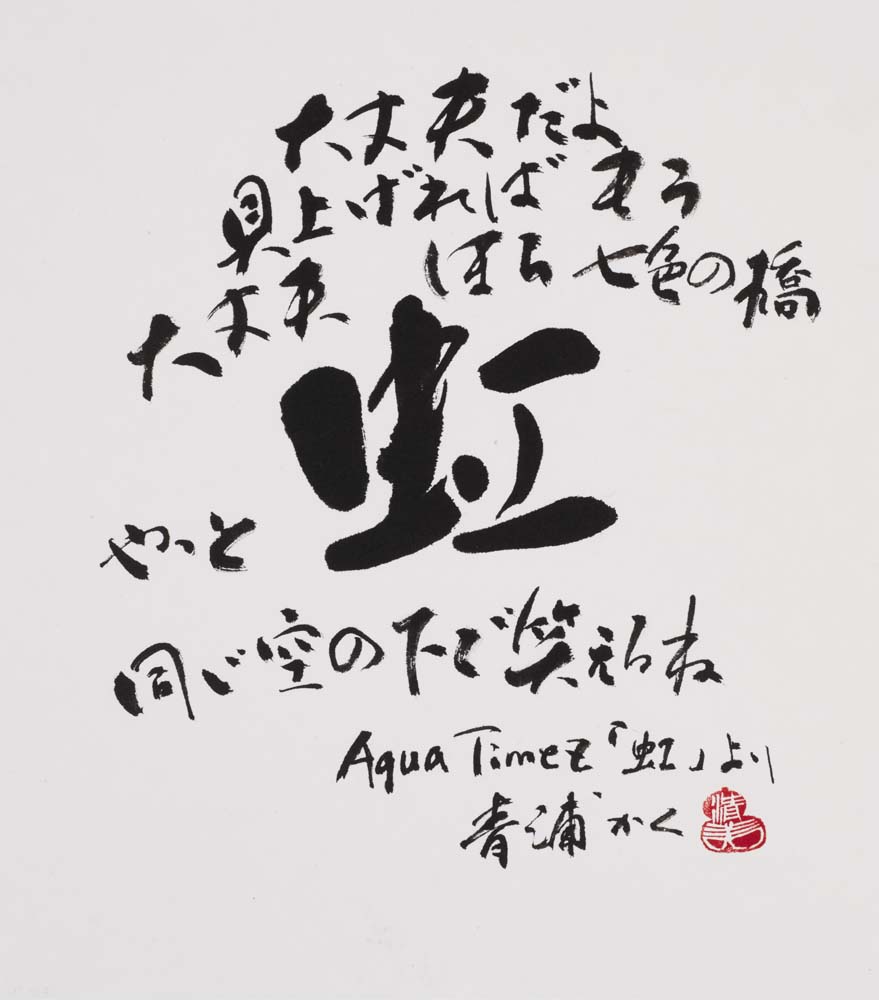 大丈夫だよ
見上げれば もう
大丈夫 ほら 七色の橋
虹
やっと
同じ空の下で笑えるね
Aqua Timez「虹」より
青浦 かく